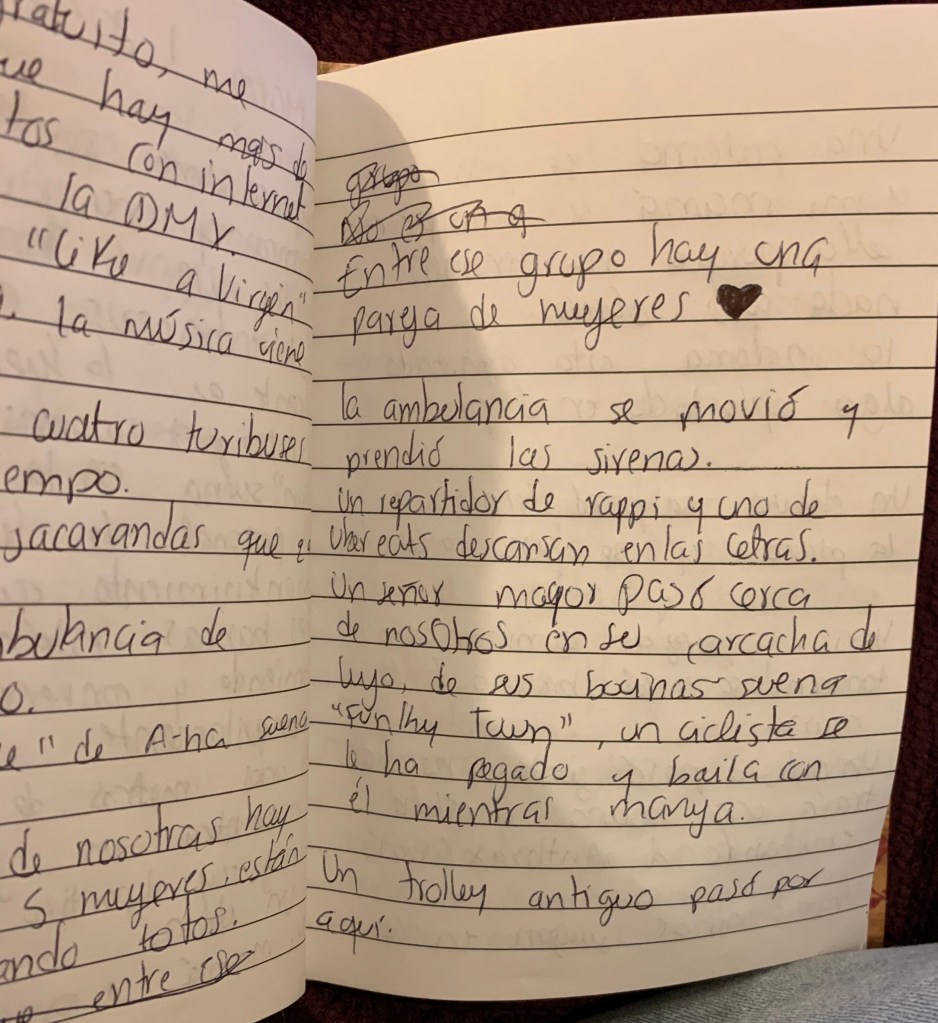 ratuito, me
ue hay mas de
tos con internet
la CDMX.
"Like a Virgin"
la música viene
cuatro turibuses
empo.
jacarandas que
bulancia de
o.
e" de A-ha suena
de nosotras hay
s, mujeres, están
ando fotos.
entre ese
grupo
No es una
Entre ese grupo hay una
pareja de mujeres ♥
la ambulancia se movió y
prendió las sirenas.
Un repartidor de rappi y uno de
Uber eats descansan en las letras.
Un señor mayor pasó cerca
de nosotros en su carcacha de
lujo, de sus bocinas suena
"Funlhy Town", un ciclista se
le ha pegado y baila con
él mientras maneja.
Un trolley antiguo pasó por
aquí.